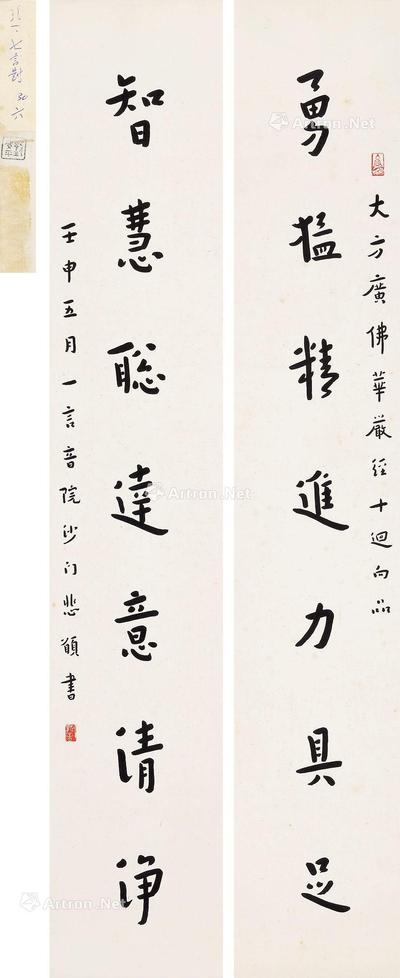 大方廣佛華嚴經十迴向品
勇猛精進力具足
智慧聡達意清淨
壬申五月一言音院沙门悲願書
Artron.Net
Artron.Net
Artron.Net
Artron.Net